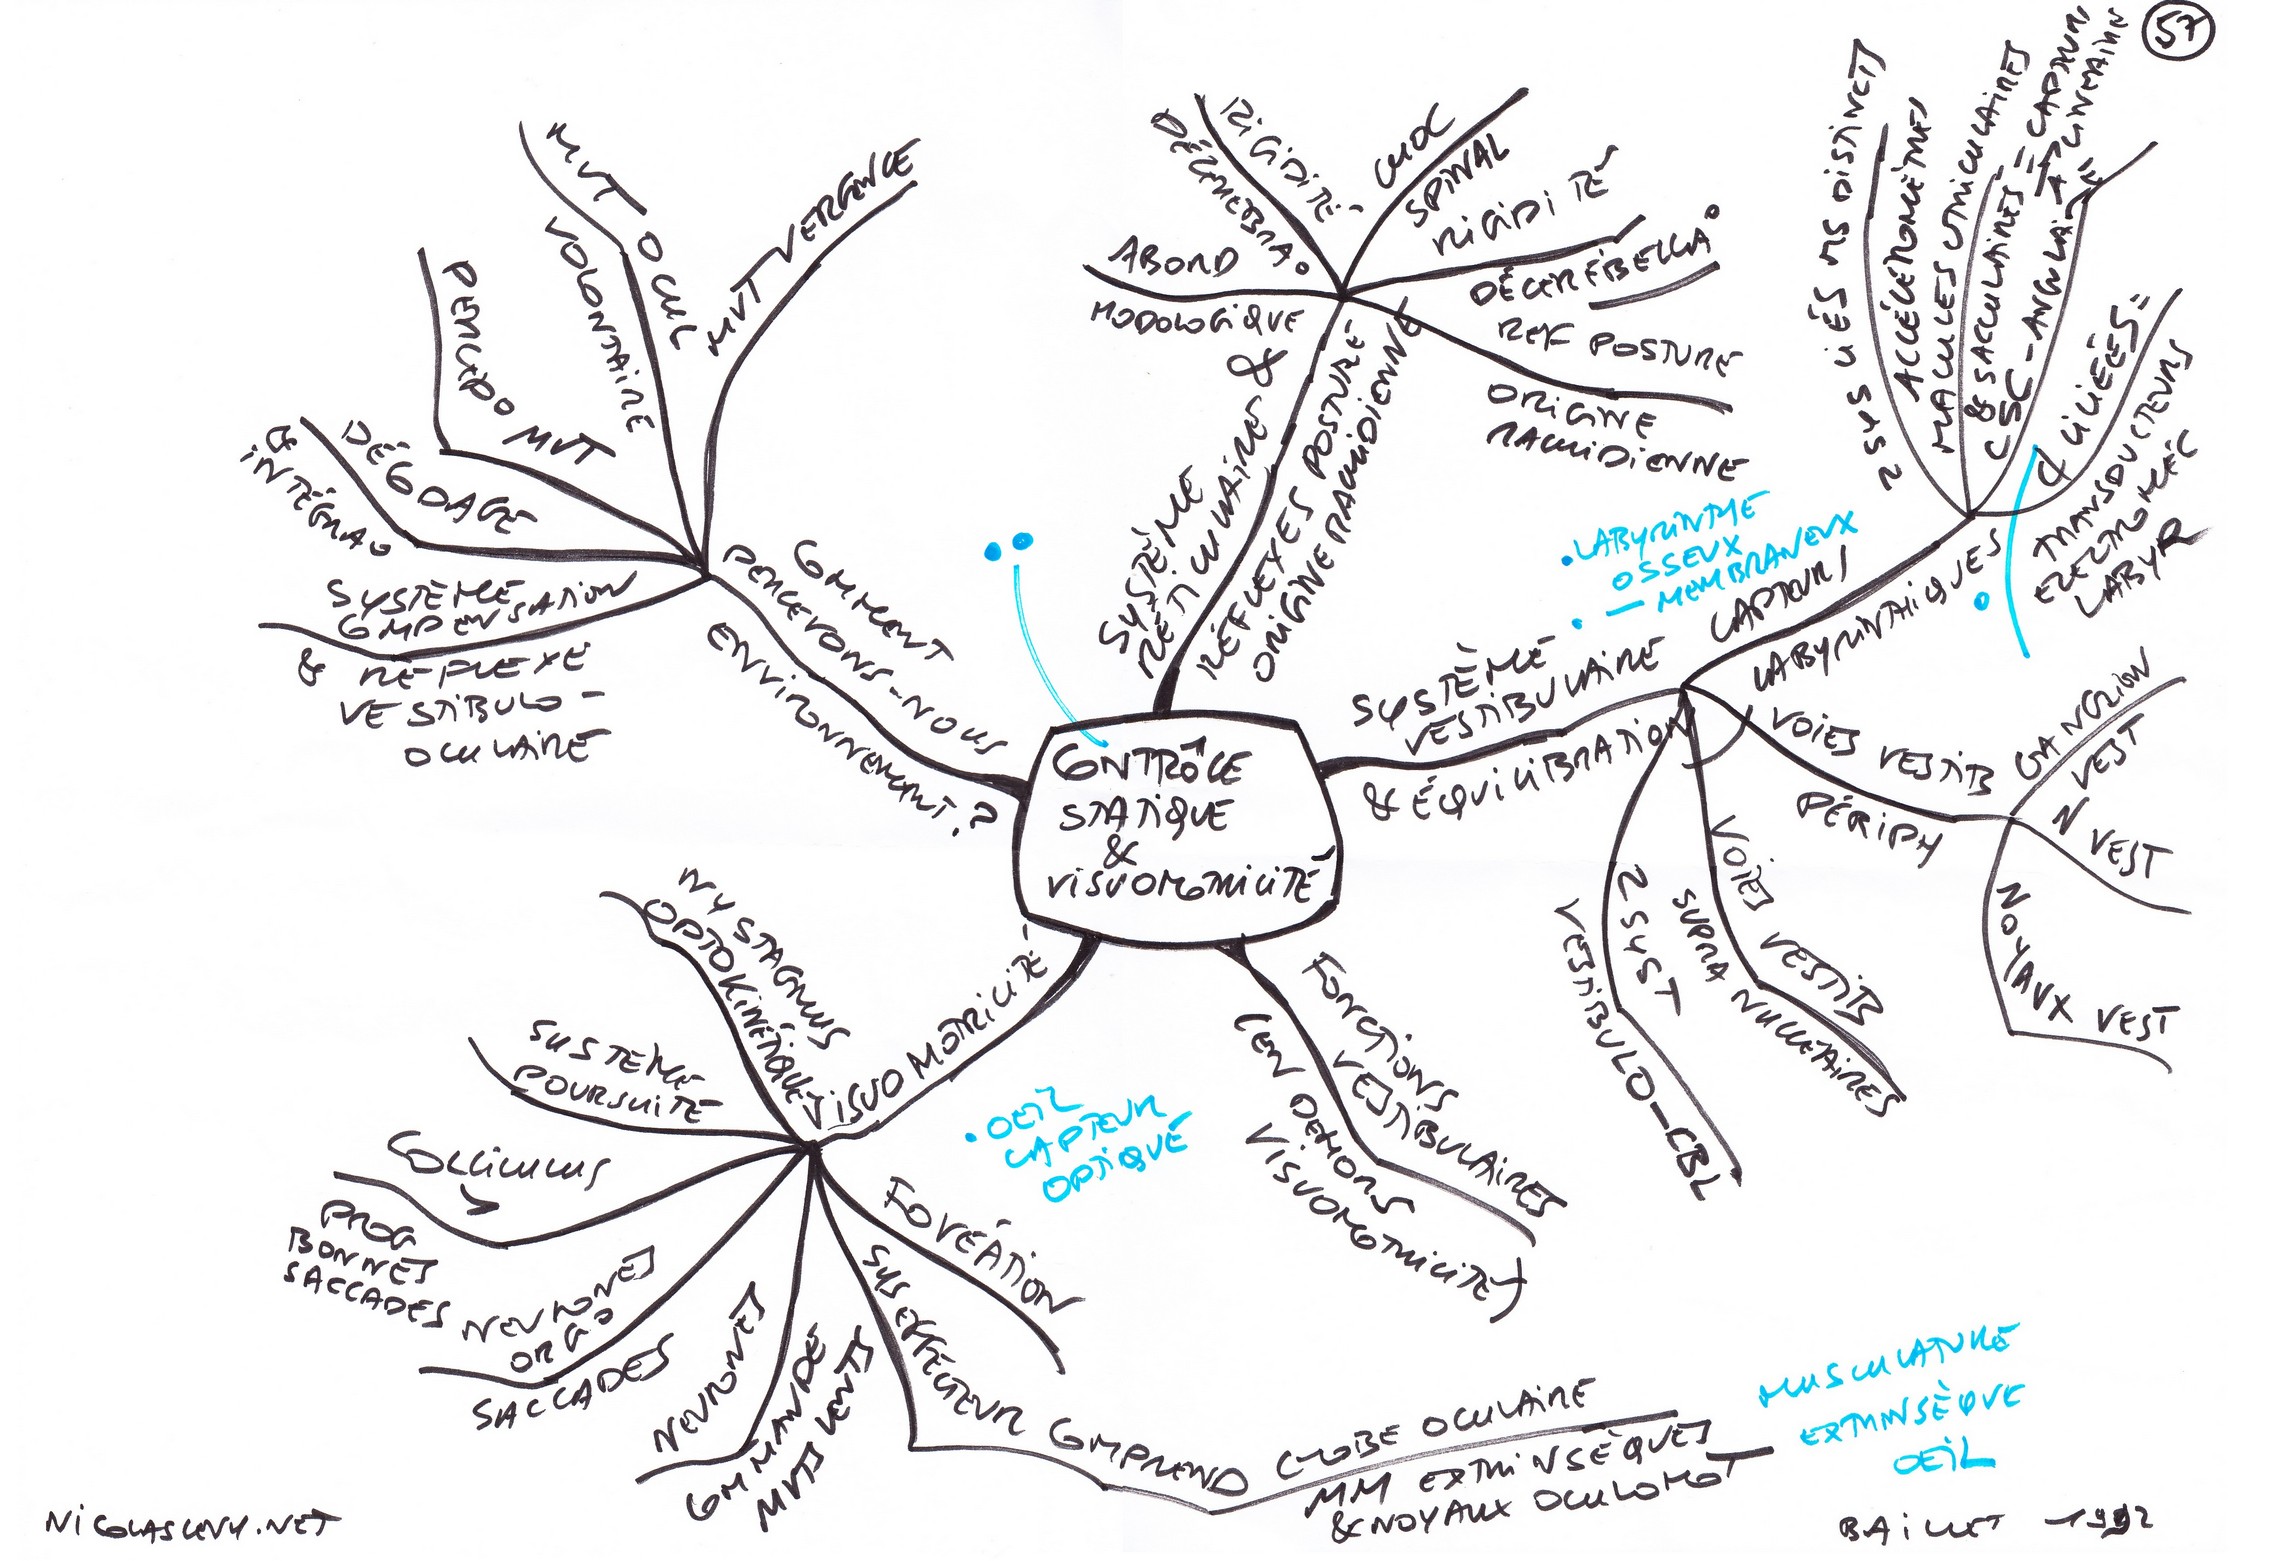 57
CONTRÔLE
STATIQUE
&
VISUOMOTRICITÉ
SYSTÈME
RÉTICULAIRE &
RÉFLEXES POSTURE
ORIGINE RACHIDIENNE
ABORD
MODOLOGIQUE
RIGIDITÉ
DÉCÉRÉBRA°
CHOC
SPINAL
RIGIDITÉ
DÉCÉRÉBELLA°
REF POSTURE
ORIGINE
RACHIDIENNE
SYSTÈME
VESTIBULAIRE
& ÉQUILIBRATION
LABYRINTHE
OSSEUX
— MEMBRANEUX
CAPTEURS
LABYRINTHIQUES
2 SYS LIÉS MS DISTINCTS
ACCÉLÉROMÈTRES
MACULES UTRICULAIRES
& SACCULAIRES = CAPTEURS
A LINÉAIRE
CSC - ANGULAIRE
¢ CILIÉES =
TRANSDUCTEURS
ELECTROMÉC
LABYR
VOIES VESTIB
PÉRIPH
GANGLION
VEST
N VEST
NOYAUX VEST
VOIES VESTIB
SUPRA NUCLÉAIRES
2 SYST
VESTIBULO-CBL
FONCTIONS
VESTIBULAIRES
(EN DEHORS
VISUOMOTRICITÉ)
VISUO MOTRICITÉ
OEIL
CAPTEUR
OPTIQUE
FOVÉATION
SYS EFFECTEUR COMPREND
GLOBE OCULAIRE
MM EXTRINSÈQUES
& NOYAUX OCULOMOT
MUSCULATURE
EXTRINSÈQUE
OEIL
NEURONES
COMMANDE
MVTS LENTS
NEURONES
ORG°
SACCADES
COLLICULUS
>
PROG
BONNES
SACCADES
SYSTÈME
POURSUITE
NYSTAGMUS
OPTOKINÉTIQUE
COMMENT
PERCEVONS-NOUS
ENVIRONNEMENT ?
SYSTÈME
COMPENSATION
& RÉFLEXE
VESTIBULO-
OCULAIRE
DÉCODAGE
& INTÉGRA°
PERCEP° MVT
MVT OCUL
VOLONTAIRE
MVT VERGENCE
NICOLASLEVY.NET
BAILLET 1992